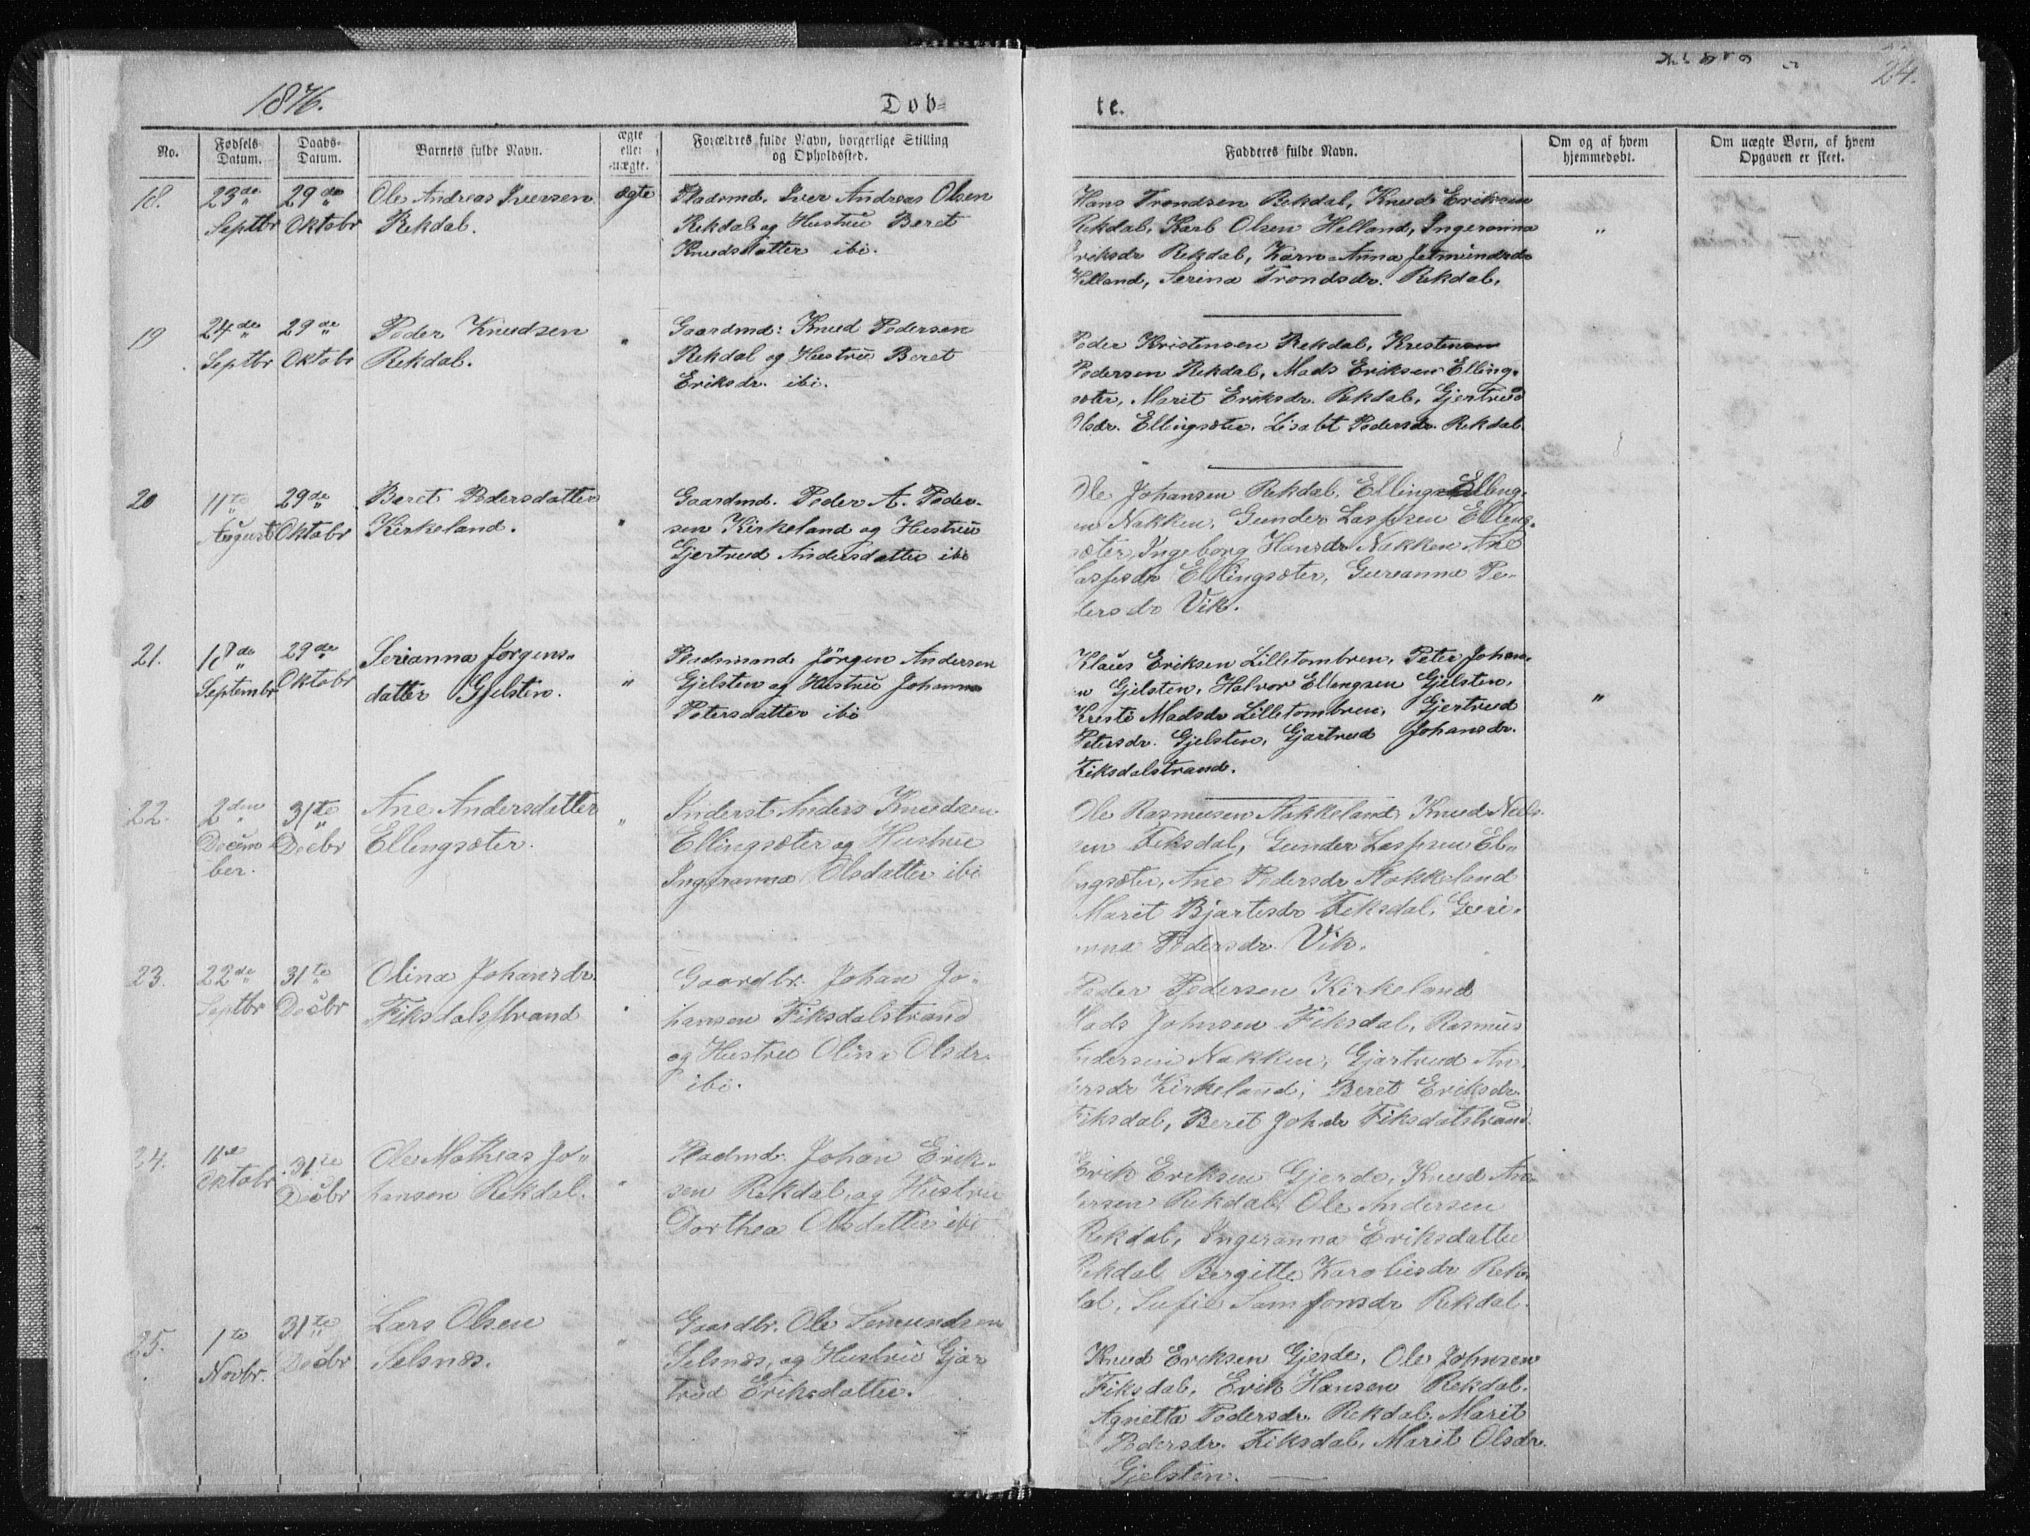 1876.
Dob-
te.
24.
No.
Fødsels Datum.
Daabs- Datum.
Barnets fulde Navn.
ægte eller uægte.
Forældres fulde Navn, borgerlige Stilling og Opholdssted.
Fadderes fulde Navn.
Om og af hvem hjemmedøbt.
Om uægte Børn, af hvem Opgaven er skeet.
18.
23de
Septbr
29de
Oktobr
Ole Andreas Iversen
Rekdal.
ægte
Pladsmd. Iver Andreas Olsen
Rekdal og Hustru Beret
Knudsdatter ibi.
Hans Trondsen Rekdal, Knud Eriksen
Rekdal, Karl Olsen Helland, Ingeranna
Eriksdr Rekdal, Karn-Anna Jetmundsdr
Helland, Serina Trondsdr. Rekdal.
"
19
24de
Septbr
29de
Oktobr
Peder Knudsen
Rekdal.
"
Gaardmd: Knud Pedersen
Rekdal og Hustru Beret
Eriksdr. ibi.
Peder Kristensen Rekdal, Kristensen
Pedersen Rekdal, Mads Eriksen Elling-
sæter, Marit Eriksdr. Rekdal, Gjertrud
Olsdr. Ellingsæter. Lisabt Pedersdr. Rekdal
20
11te
August
29de
Oktobr
Beret Pedersdatter
Kirkeland.
"
Gaardmd. Peder A. Peder-
sen Kirkeland og Hustru
Gjertrud Andersdatter ibi
Ole Johansen Rekdal. Elling Elling-
en Nakken, Gunder Lassesen Elling-
sæter, Ingeborg Hansdr Nakken Ane
Lassesdr Ellingsæter, Gurianna Pe-
dersdr Vik.
21.
18de
Septembr
29de
Oktobr
Serianna Jørgens-
datter Gjelsten.
"
Pladsmand Jørgen Andersen
Gjelsten og Hustru Johanna
Petersdatter ibi
Klaus Eriksen Lilletombren, Peter Johan-
en Gjelsten, Halvor Ellingsen Gjelsten,
Kristi Madsdr Lilletombren, Gjertrud
Petersdr. Gjelsten, Gjartrud Johansdr.
Fiksdalstrand.
"
22.
2den
Decem
ber.
31te
Decbr
Ane Andersdatter
Ellingsæter.
"
Inderst Anders Knudsen
Ellingsæter og Hustru
Ingeranna Olsdatter ibi
Ole Rasmusen Aakkeland, Knud Nils-
sen Fiksdal, Gunder Lassesen El-
ingsæter, Ane Pedersdr Aakkeland
Marit Bjartesdr Fiksdal, Guri-
anna Pedersdr. Vik.
23.
22de
Septbr
31te
Decbr
Olina Johansdr.
Fiksdalsstrand
"
Gaardbr. Johan Jo-
hansen Fiksdalstrand
og Hustru Olina Olsdr.
ibi.
Peder Pedersen Kirkeland
Mads Johnsen Fiksdal, Rasmus
Andersen Nakken, Gjartrud An-
dersdr Kirkeland, Beret Eriksdr.
Fiksdal, Beret Johsdr Fiksdalstrand
24.
11te
Oktobr
31te
Decbr
Ole Mathias Jo-
hansen Rekdal.
"
Pladmd. Johan Erik-
sen Rekdal og Hustru
Dorthea Olsdatter ibi
Erik Eriksen Gjerde, Knud An-
ersen Rekdal Ole Andersen
Rekdal, Ingeranna Eriksdatter
Rekdal Bergitte Karoliusdr Rek-
dal, Sufie Samsonsdr Rekdal.
25.
1te
Novbr.
31te
Decbr
Lars Olsen
Selsnæs.
"
Gaardbr. Ole Semundsen
Selsnæs, og Hustru Gjar
trud Eriksdatter.
Knud Eriksen Gjerde, Ole Johnsen
Fiksdal, Erik Hansen Rekdal.
Agnetta Pedersdr. Rekdal, Marit
Pedersdr. Fiksdal, Marit Olsdr.
Gjelsten.